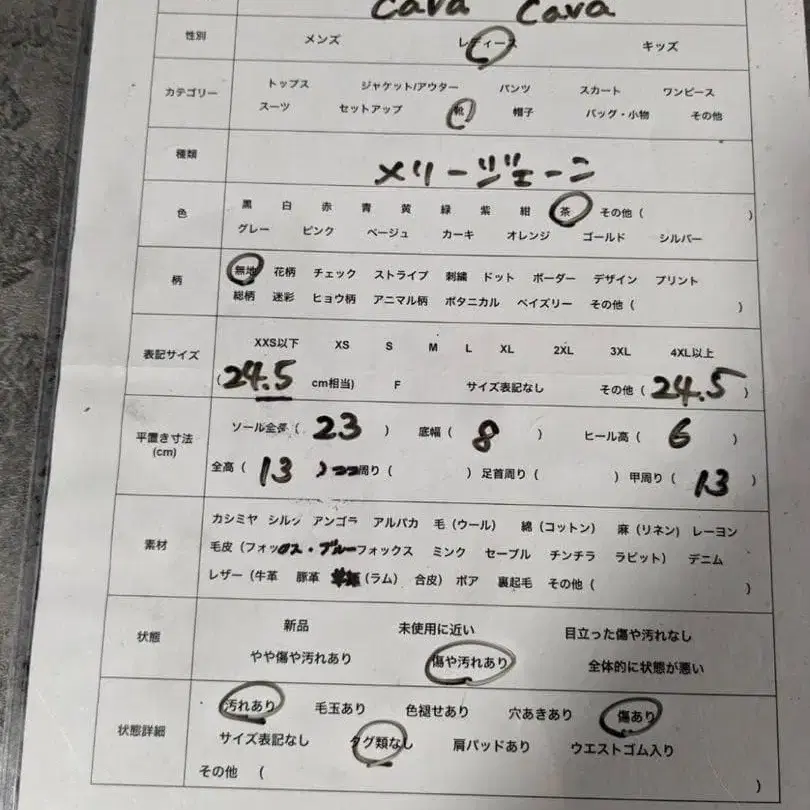 cava cava
性別 メンズ レディース キッズ
カテゴリー トップス ジャケット/アウター パンツ スカート ワンピース
スーツ セットアップ 靴 帽子 バッグ・小物 その他
種類 メリージェーン
色 黒 白 赤 青 黄 緑 紫 紺 茶 その他 ( )
グレー ピンク ベージュ カーキ オレンジ ゴールド シルバー
柄 無地 花柄 チェック ストライプ 刺繍 ドット ボーダー デザイン プリント
総柄 迷彩 ヒョウ柄 アニマル柄 ボタニカル ペイズリー その他 ( )
表記サイズ XXS以下 XS S M L XL 2XL 3XL 4XL以上
( 24.5 cm相当) F サイズ表記なし その他 ( 24.5 )
平置き寸法 (cm) ソール全長 ( 23 ) 底幅 ( 8 ) ヒール高 ( 6 )
全高 ( 13 ) 周り ( ) 足首周り ( ) 甲周り ( 13 )
素材 カシミヤ シルク アンゴラ アルパカ 毛 (ウール) 綿 (コットン) 麻 (リネン) レーヨン
毛皮 (フォックス・ブルーフォックス ミンク セーブル チンチラ ラビット) デニム
レザー (牛革 豚革 (ラム) 合皮) ボア 裏起毛 その他 ( )
状態 新品 未使用に近い 目立った傷や汚れなし
やや傷や汚れあり 傷や汚れあり 全体的に状態が悪い
状態詳細 汚れあり 毛玉あり 色褪せあり 穴あきあり 傷あり
サイズ表記なし タグ類なし 肩パッドあり ウエストゴム入り
その他 ( )